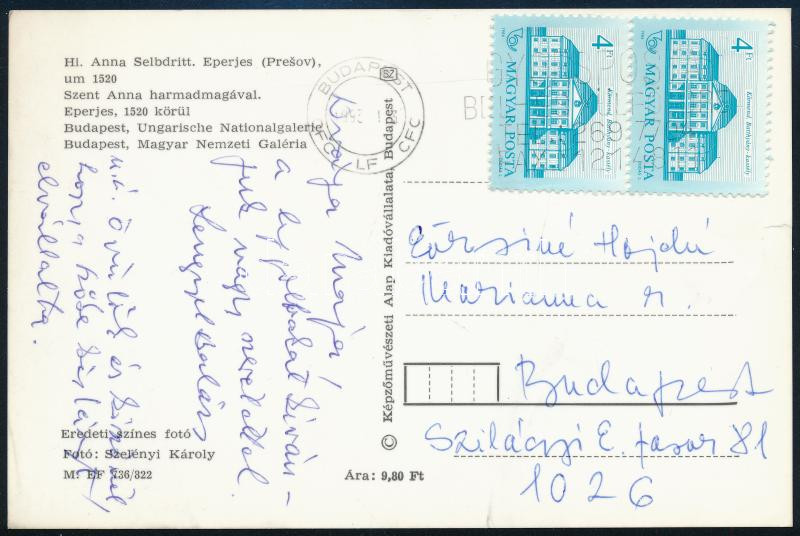 Hl. Anna Selbdritt. Eperjes (Prešov),
um 1520
Szent Anna harmadmagával.
Eperjes, 1520 körül
Budapest, Ungarische Nationalgalerie
Budapest, Magyar Nemzeti Galéria
Maja!
a legjobbakat kíván-
juk nagy szeretettel
Lengyel Balázs
u.i. örülök és
elvállalta.
Eredeti színes fotó
Fotó: Szelényi Károly
M: EF 736/822
Ára: 9,80 Ft
© Képzőművészeti Alap Kiadóvállalata, Budapest
BUDAPEST
SZ
CFC LF CFC
4 Ft
MAGYAR POSTA
Körmend, Batthyány-kastély
4 Ft
MAGYAR POSTA
Körmend, Batthyány-kastély
Hajdú
Marianna r.
Budapest
Szilágyi E. fasor 81
1026